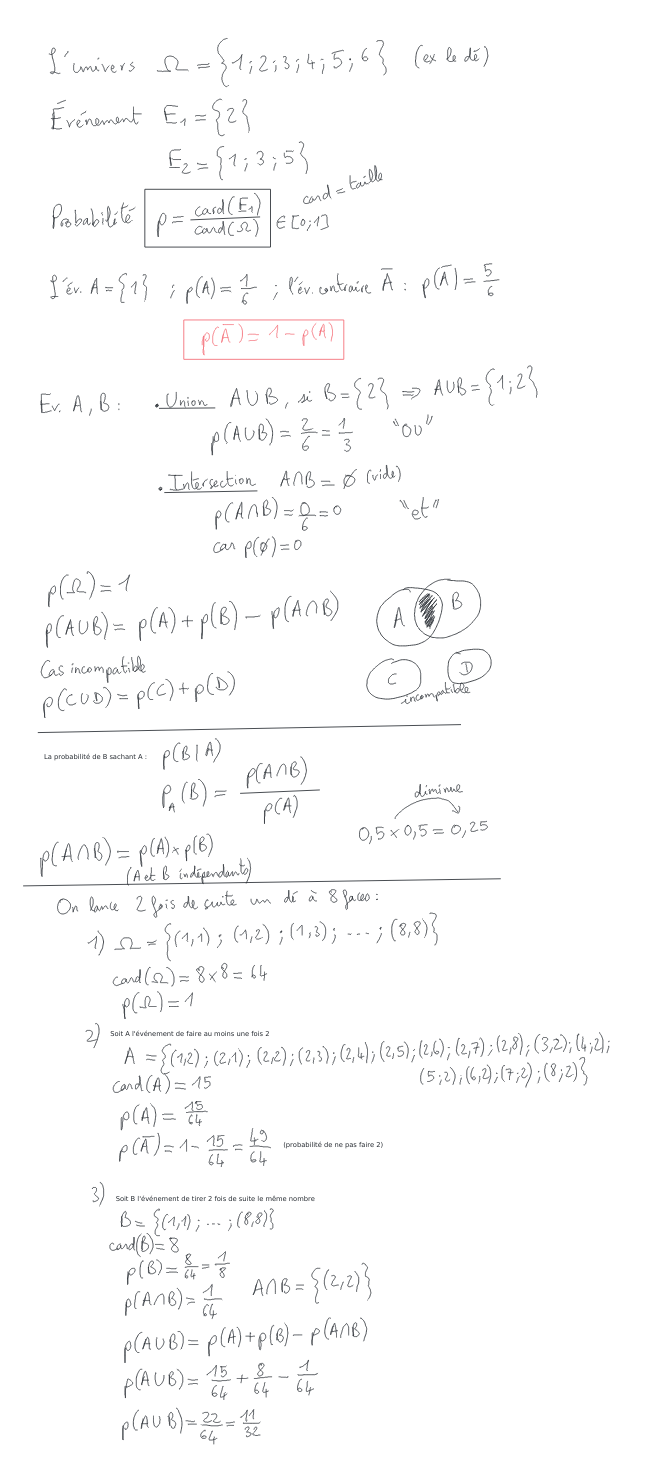 L'univers Ω = {1 ; 2 ; 3 ; 4 ; 5 ; 6} (ex le dé)
Événement E₁ = {2}
E₂ = {1 ; 3 ; 5}
Probabilité p = card(E₁)/card(Ω) ∈ [0;1] card = taille
L'év. A = {1} ; p(A) = 1/6 ; l'év. contraire A̅ : p(A̅) = 5/6
p(A̅) = 1 - p(A)
Ev. A, B : • Union A∪B, si B = {2} ⇒ A∪B = {1 ; 2}
p(A∪B) = 2/6 = 1/3 "ou"
• Intersection A∩B = ∅ (vide)
p(A∩B) = 0/6 = 0 "et"
car p(∅) = 0
p(Ω) = 1
p(A∪B) = p(A) + p(B) - p(A∩B) A B
Cas incompatible
p(C∪D) = p(C) + p(D) C D
incompatible
La probabilité de B sachant A : p(B|A)
p_A(B) = p(A∩B)/p(A)
diminue
0,5 × 0,5 = 0,25
p(A∩B) = p(A) × p(B)
(A et B indépendants)
On lance 2 fois de suite un dé à 8 faces :
1) Ω = {(1,1) ; (1,2) ; (1,3) ; ... ; (8,8)}
card(Ω) = 8×8 = 64
p(Ω) = 1
2) Soit A l'événement de faire au moins une fois 2
A = {(1,2) ; (2,1) ; (2,2) ; (2,3) ; (2,4) ; (2,5) ; (2,6) ; (2,7) ; (2,8) ; (3,2) ; (4;2) ;
(5;2) ; (6,2) ; (7;2) ; (8;2)}
card(A) = 15
p(A) = 15/64
p(A̅) = 1 - 15/64 = 49/64 (probabilité de ne pas faire 2)
3) Soit B l'événement de tirer 2 fois de suite le même nombre
B = {(1,1) ; ... ; (8,8)}
card(B) = 8
p(B) = 8/64 = 1/8
p(A∩B) = 1/64 A∩B = {(2,2)}
p(A∪B) = p(A) + p(B) - p(A∩B)
p(A∪B) = 15/64 + 8/64 - 1/64
p(A∪B) = 22/64 = 11/32